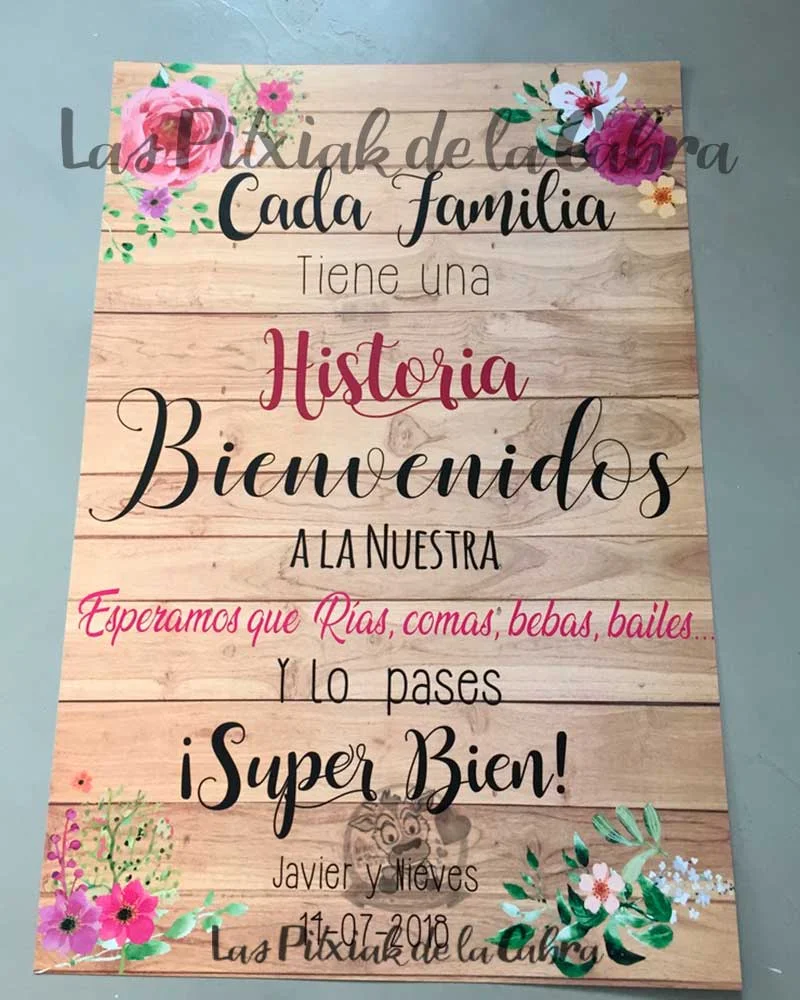 Las Pitxiak de la Cabra
Cada Familia
Tiene una
Historia
Bienvenidos
A LA NUESTRA
Esperamos que Rías, comas, bebas, bailes...
Y lo pases
¡Super Bien!
Javier y Nieves
14-07-2018
Las Pitxiak de la Cabra